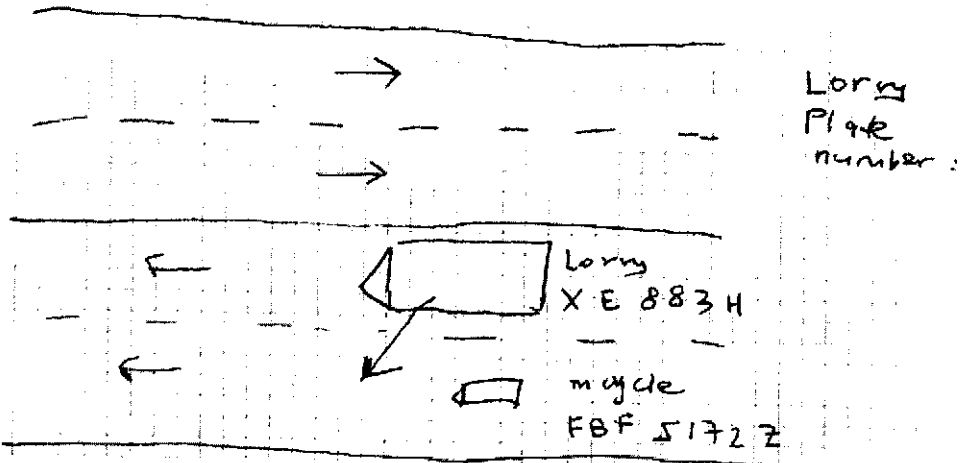 Lorry
Plate
number :
Lorry
XE 883H
mcycle
FBF 5172Z